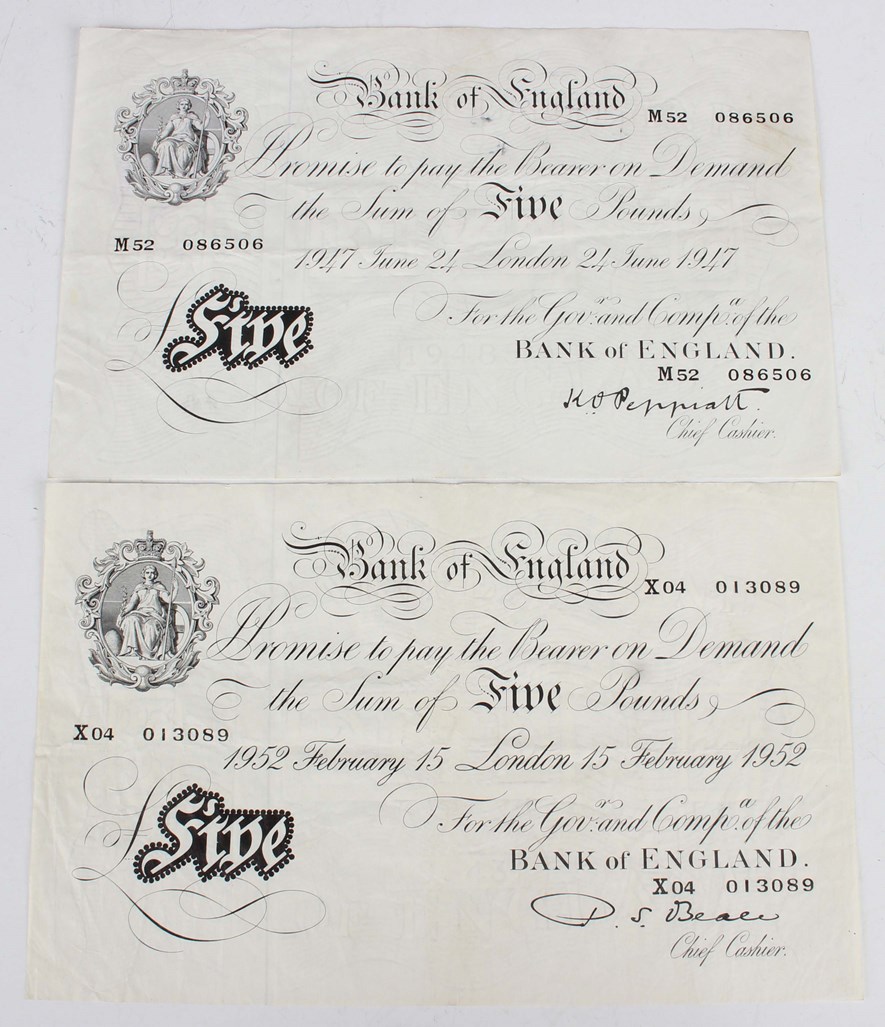 Bank of England
M52 086506
I Promise to pay the Bearer on Demand
the Sum of Five Pounds
M52 086506
1947 June 24 London 24 June 1947
For the Govr. and Compa. of the
£Five
BANK of ENGLAND.
M52 086506
K.O. Peppiatt.
Chief Cashier.
Bank of England
X04 013089
I Promise to pay the Bearer on Demand
the Sum of Five Pounds
X04 013089
1952 February 15 London 15 February 1952
For the Govr. and Compa. of the
£Five
BANK of ENGLAND.
X04 013089
P. S. Beale
Chief Cashier.